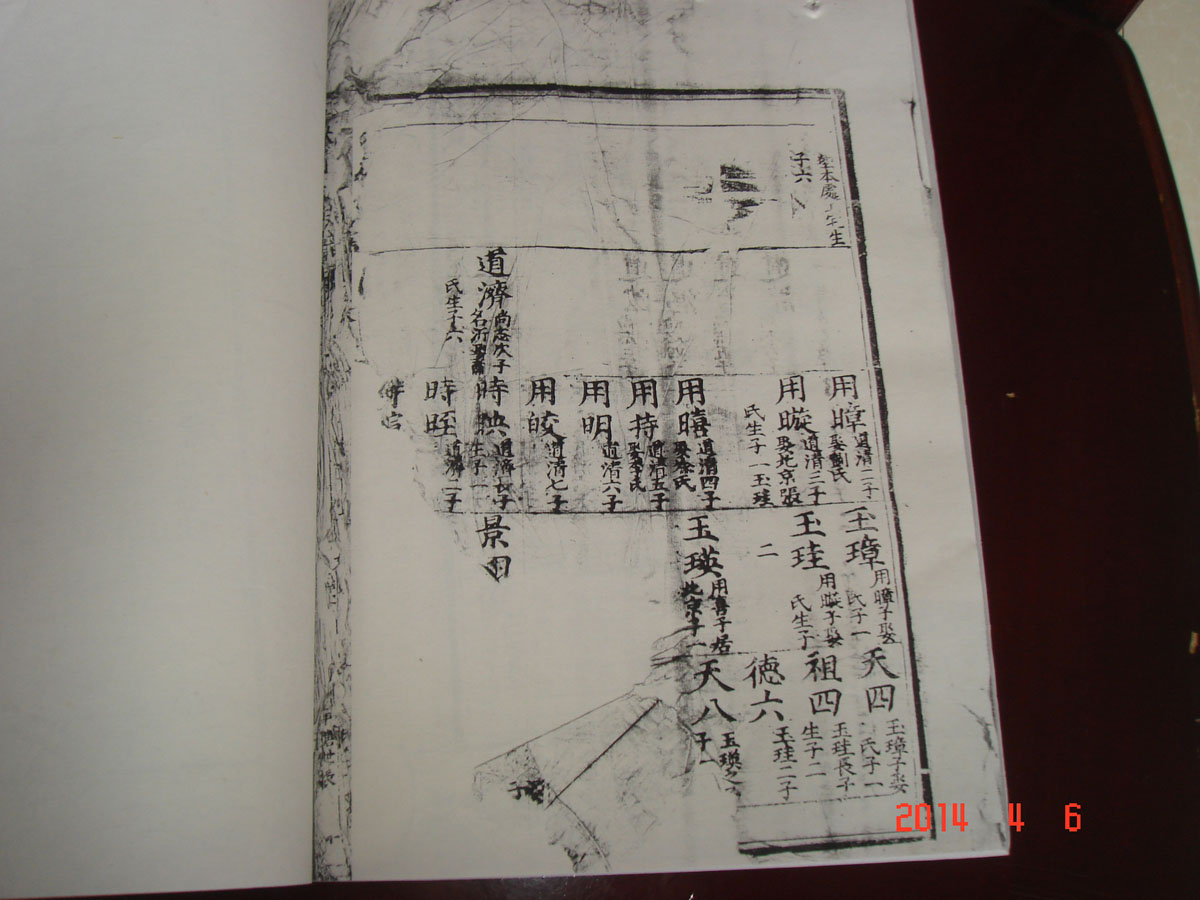 子六
道濟
尚志次子
氏生子六
用暲
道清二子
娶劉氏
用暶
道清三子
娶北京張
氏生子一玉珪
用暿
道清四子
娶徐氏
用持
道清五子
娶李氏
用明
道清六子
用皎
道清七子
時映
道濟長子
生子一
時晊
道濟二子
玉璋
用暲子娶
氏子一
玉珪
用暶子娶
氏生子
二
玉瑛
用喜子居
北京子一
景
天四
玉璋子娶
氏子一
祖四
玉珪長子
生子二
德六
玉珪二子
天八
玉瑛之
子一
子
2014 4 6